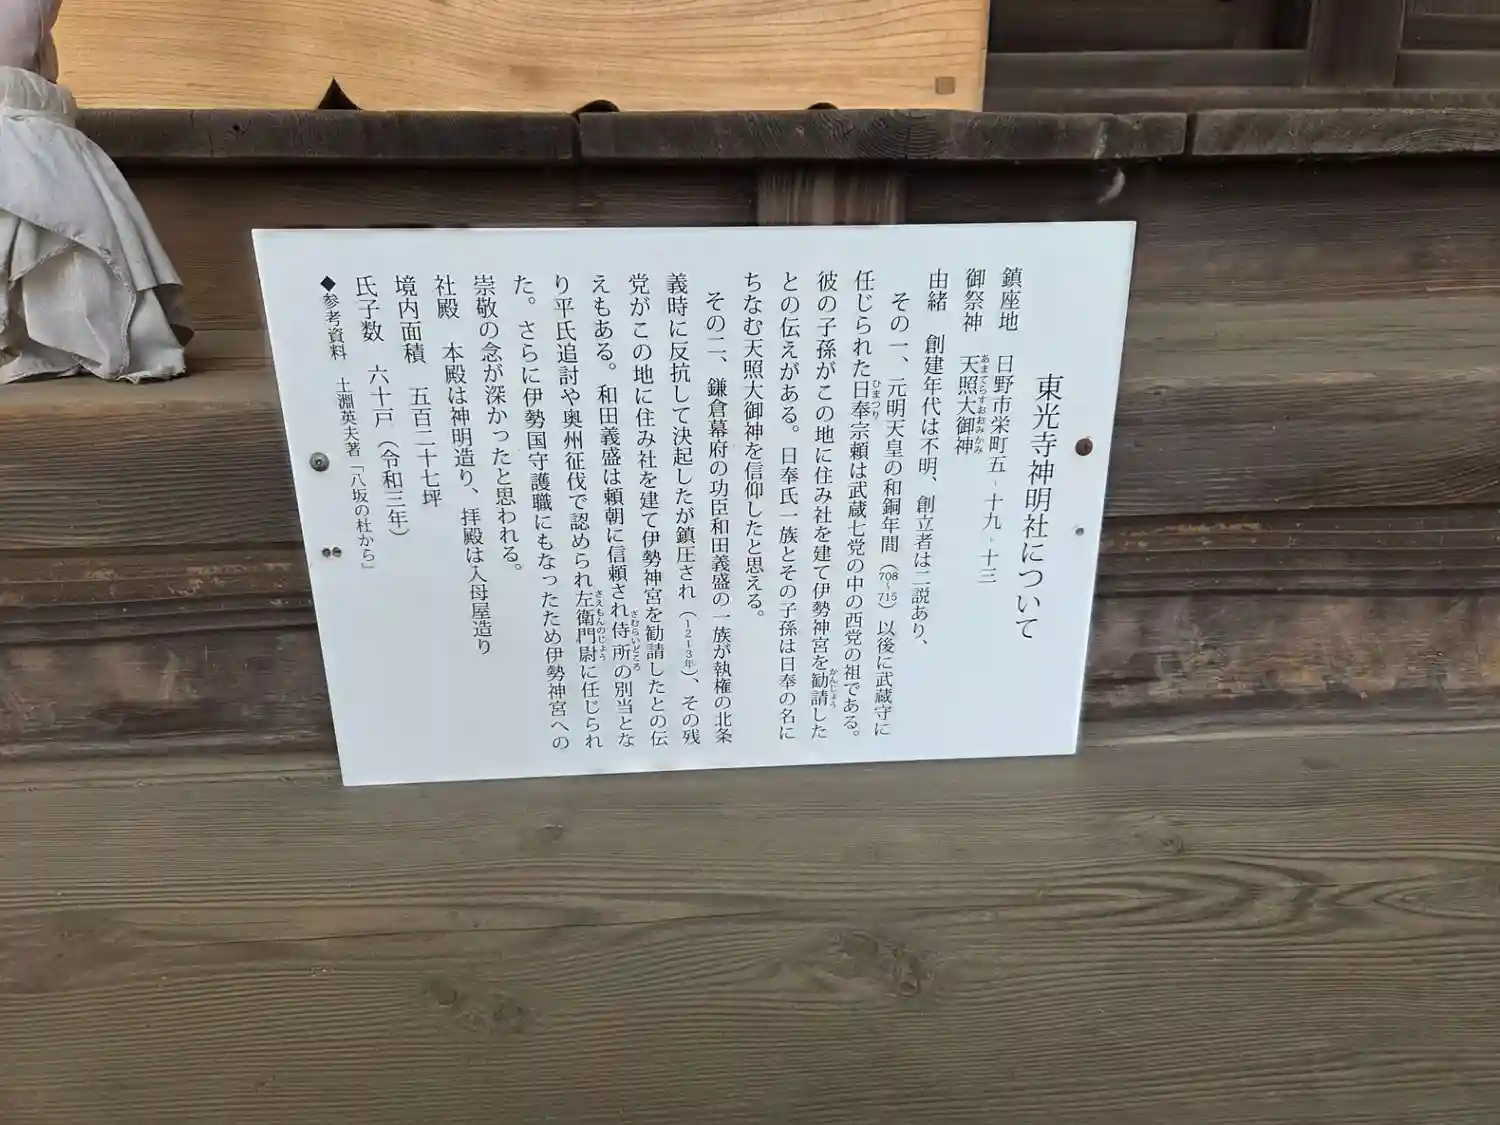 東光寺神明社について
鎮座地　日野市栄町五-十九-十三
御祭神　天照大御神
あまてらすおおみかみ
由緒　創建年代は不明、創立者は二説あり、
その一、元明天皇の和銅年間（708~715）以後に武蔵守に
任じられた日奉宗頼は武蔵七党の中の西党の祖である。
ひまつり
彼の子孫がこの地に住み社を建て伊勢神宮を勧請した
かんじょう
との伝えがある。日奉氏一族とその子孫は日奉の名に
ちなむ天照大御神を信仰したと思える。
その二、鎌倉幕府の功臣和田義盛の一族が執権の北条
義時に反抗して決起したが鎮圧され（1213年）、その残
党がこの地に住み社を建て伊勢神宮を勧請したとの伝
えもある。和田義盛は頼朝に信頼され侍所の別当とな
さむらいどころ
り平氏追討や奥州征伐で認められ左衛門尉に任じられ
さえもんのじょう
た。さらに伊勢国守護職にもなったため伊勢神宮への
崇敬の念が深かったと思われる。
社殿　本殿は神明造り、拝殿は入母屋造り
境内面積　五百二十七坪
氏子数　六十戸（令和三年）
◆参考資料　土淵英夫著「八坂の杜から」